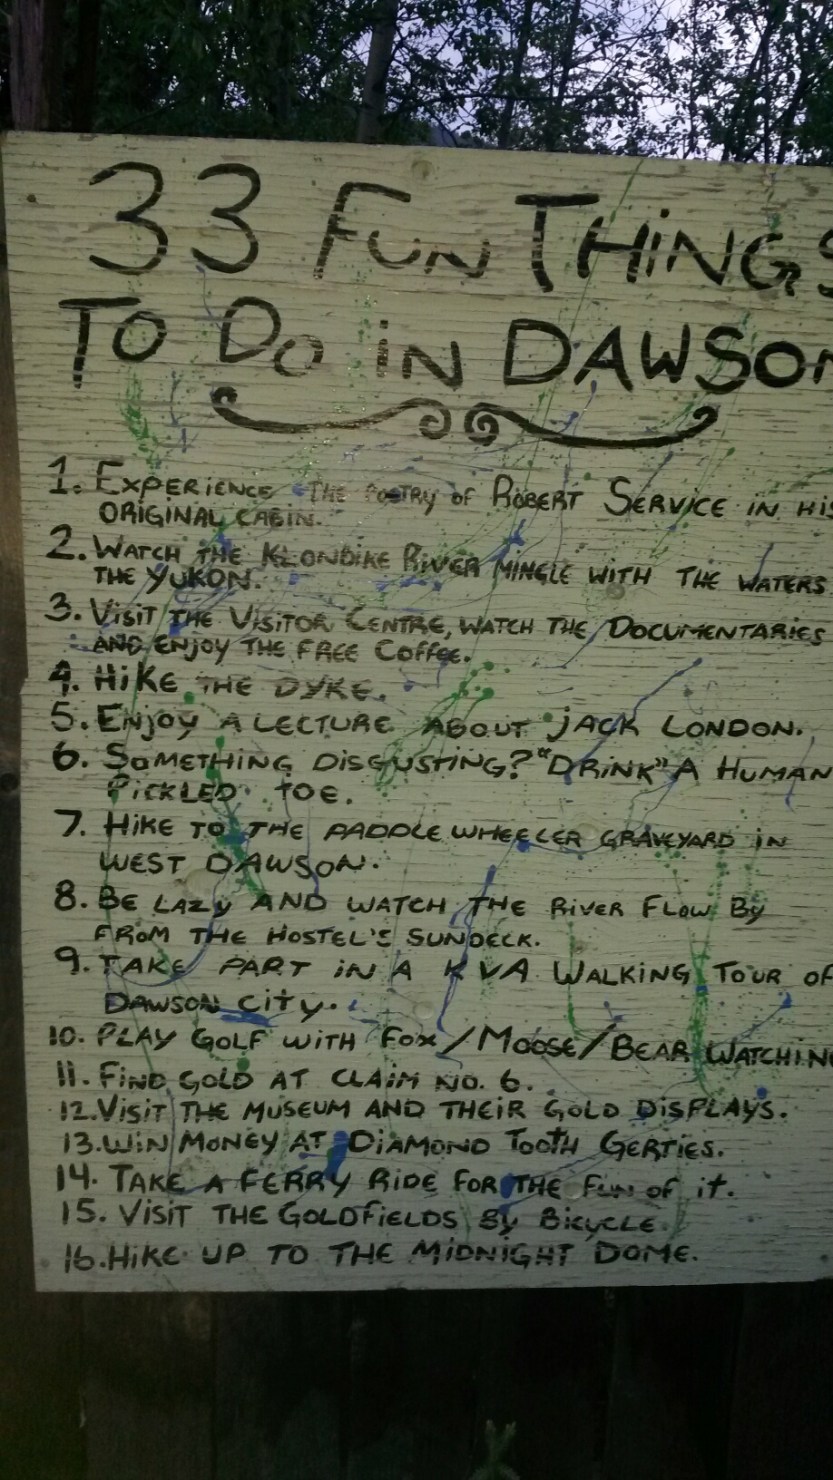 33 FUN THINGS
TO DO IN DAWSON
1. EXPERIENCE THE POETRY OF ROBERT SERVICE IN HIS
ORIGINAL CABIN.
2. WATCH THE KLONDIKE RIVER MINGLE WITH THE WATERS
THE YUKON.
3. VISIT THE VISITOR CENTRE, WATCH THE DOCUMENTARIES
AND ENJOY THE FREE COFFEE.
4. HIKE THE DYKE.
5. ENJOY A LECTURE ABOUT JACK LONDON.
6. SOMETHING DISGUSTING? "DRINK" A HUMAN
PICKLED TOE.
7. HIKE TO THE PADDLE WHEELER GRAVEYARD IN
WEST DAWSON.
8. BE LAZY AND WATCH THE RIVER FLOW BY
FROM THE HOSTEL'S SUNDECK.
9. TAKE PART IN A KVA WALKING TOUR OF
DAWSON CITY.
10. PLAY GOLF WITH FOX/MOOSE/BEAR WATCHIN
11. FIND GOLD AT CLAIM NO. 6.
12. VISIT THE MUSEUM AND THEIR GOLD DISPLAYS.
13. WIN MONEY AT DIAMOND TOOTH GERTIES.
14. TAKE A FERRY RIDE FOR THE FUN OF IT.
15. VISIT THE GOLDFIELDS BY BICYCLE.
16. HIKE UP TO THE MIDNIGHT DOME.